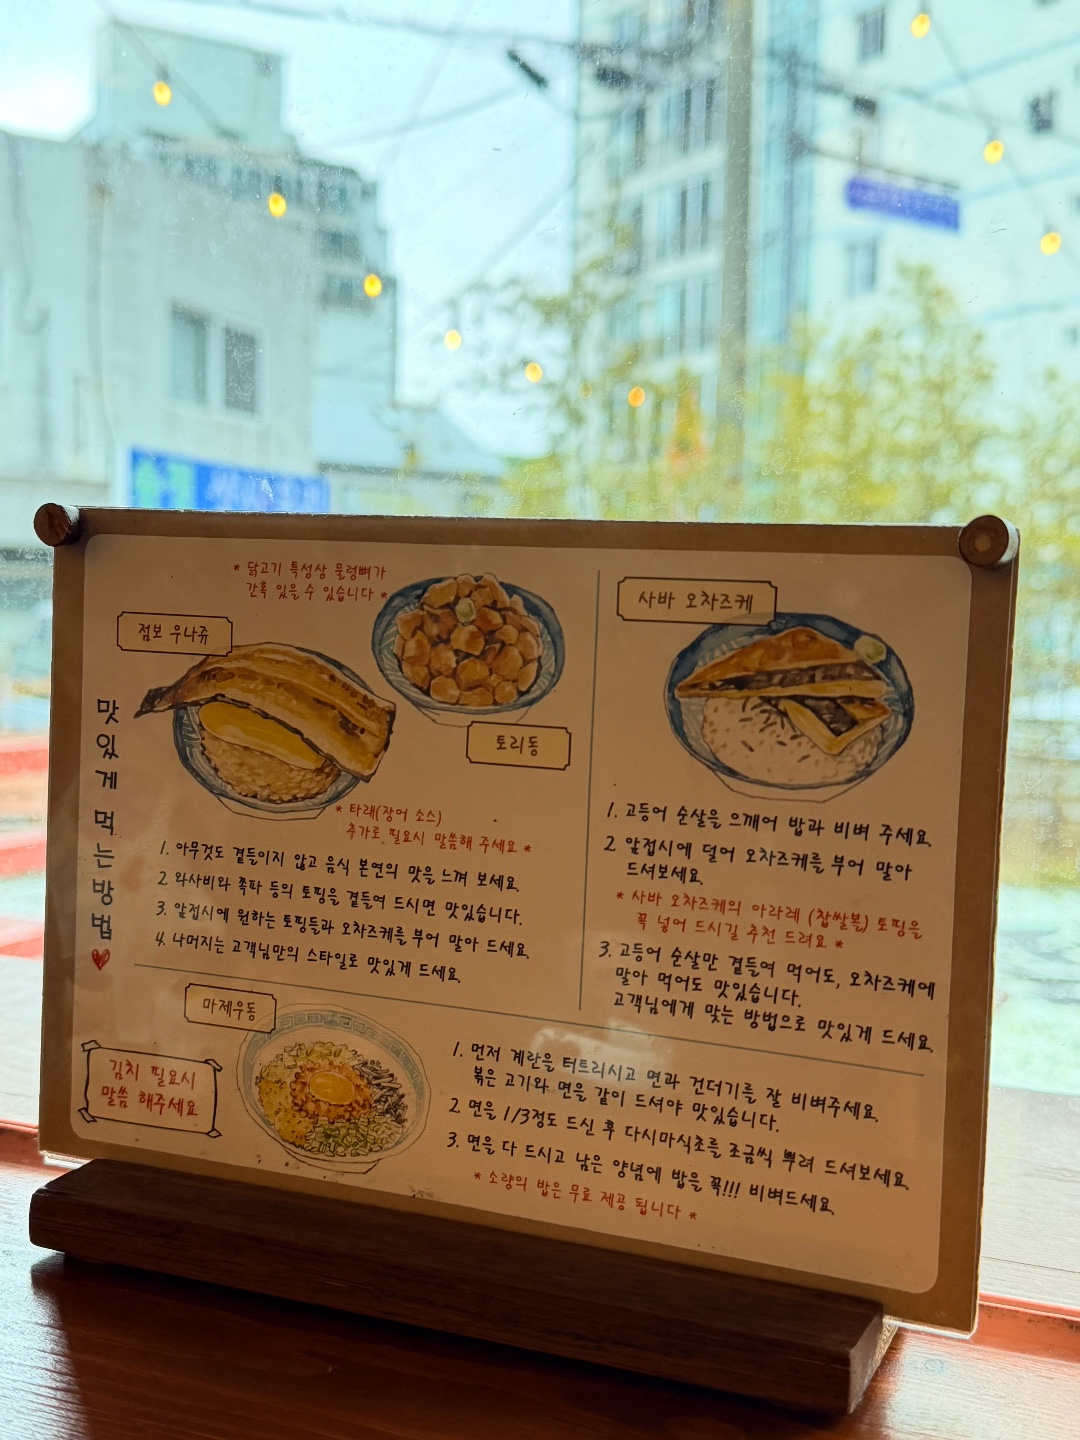 맛있게 먹는 방법
* 닭고기 특성상 물렁뼈가
간혹 있을 수 있습니다 *
점보 우나쥬
토리동
* 타래(장어 소스)
추가로 필요시 말씀해 주세요 *
1. 아무것도 곁들이지 않고 음식 본연의 맛을 느껴 보세요.
2. 와사비와 쪽파 등의 토핑을 곁들여 드시면 맛있습니다.
3. 앞접시에 원하는 토핑들과 오차즈케를 부어 말아 드세요.
4. 나머지는 고객님만의 스타일로 맛있게 드세요.
사바 오차즈케
1. 고등어 순살을 으깨어 밥과 비벼 주세요.
2. 앞접시에 덜어 오차즈케를 부어 말아
드셔보세요.
* 사바 오차즈케의 아라레 (찹쌀볼) 토핑을
꼭 넣어 드시길 추천 드려요 *
3. 고등어 순살만 곁들여 먹어도, 오차즈케에
말아 먹어도 맛있습니다.
고객님에게 맞는 방법으로 맛있게 드세요.
마제우동
김치 필요시
말씀 해주세요
1. 먼저 계란을 터트리시고 면과 건더기를 잘 비벼주세요.
볶은 고기와 면을 같이 드셔야 맛있습니다.
2. 면을 1/3정도 드신 후 다시마식초를 조금씩 뿌려 드셔보세요.
3. 면을 다 드시고 남은 양념에 밥을 꼭!!! 비벼드세요.
* 소량의 밥은 무료 제공 됩니다 *